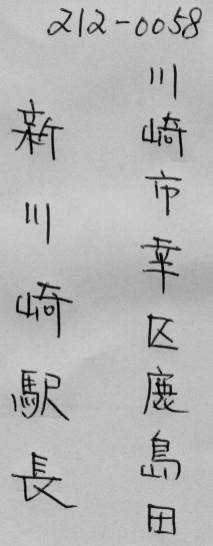 212-0058
川崎市幸区鹿島田
新川崎駅長